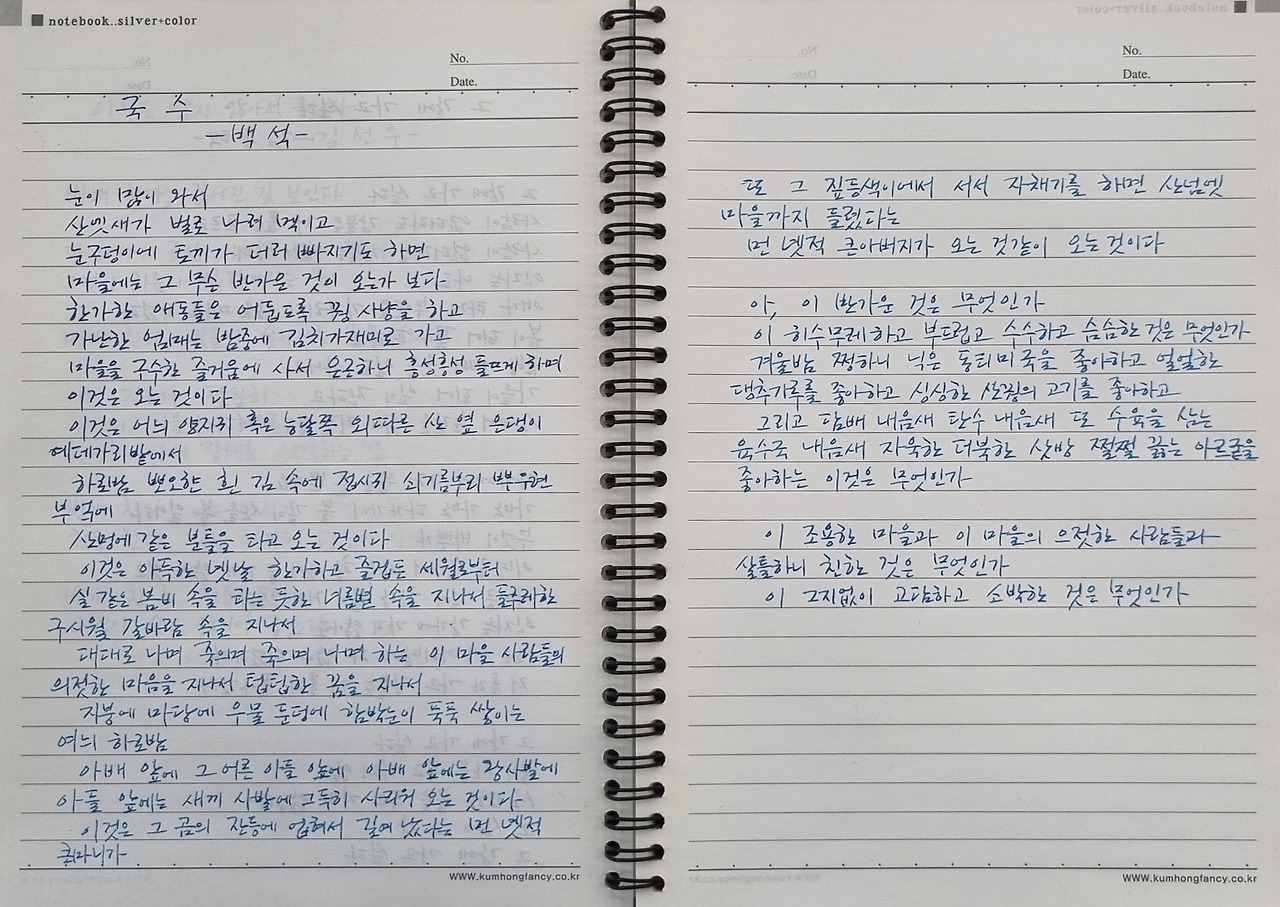 notebook..silver+color
No.
Date.
국수
-백석-
눈이 많이 와서
산엣새가 벌로 나려 멕이고
눈구덩이에 토끼가 더러 빠지기도 하면
마을에는 그 무슨 반가운 것이 오는가 보다
한가한 애동들은 어둡도록 꿩 사냥을 하고
가난한 엄매는 밤중에 김치가재미로 가고
마을을 구수한 즐거움에 사서 은근하니 흥성흥성 들뜨게 하며
이것은 오는 것이다
이것은 어늬 양지귀 혹은 능달쪽 외따른 산 옆 은댕이
예데가리밭에서
하로밤 뽀오얀 흰 김 속에 접시귀 쇠기름부리 뿌우현
부엌에
산멍에 같은 분틀을 타고 오는 것이다
이것은 아득한 녯날 한가하고 즐겁든 세월로부터
실 같은 봄비 속을 타는 듯한 녀름볕 속을 지나서 들쿠레한
구시월 갈바람 속을 지나서
대대로 나며 죽으며 죽으며 나며 하는 이 마을 사람들의
의젓한 마음을 지나서 텁텁한 꿈을 지나서
지붕에 마당에 우물 둔덩에 함박눈이 푹푹 쌓이는
여늬 하로밤
아배 앞에 그 어른 아들 앞에 아배 앞에는 왕사발에
아들 앞에는 새끼 사발에 그득히 사리워 오는 것이다
이것은 그 곰의 잔등에 업혀서 길여 났다는 먼 녯적
큰마니가
www.kumhongfancy.co.kr
No.
Date.
또 그 짚등색이에서 서서 자채기를 하면 산넘엣
마을까지 들렸다는
먼 녯적 큰아버지가 오는 것같이 오는 것이다
아, 이 반가운 것은 무엇인가
이 히수무레하고 부드럽고 수수하고 슴슴한 것은 무엇인가
겨울밤 쩡하니 닉은 동티미국을 좋아하고 얼얼한
댕추가루를 좋아하고 싱싱한 산꿩의 고기를 좋아하고
그리고 담배 내음새 탄수 내음새 또 수육을 삶는
육수국 내음새 자욱한 더북한 삿방 쩔쩔 끓는 아르굳을
좋아하는 이것은 무엇인가
이 조용한 마을과 이 마을의 으젓한 사람들과
살틀하니 친한 것은 무엇인가
이 그지없이 고담하고 소박한 것은 무엇인가
www.kumhongfancy.co.kr